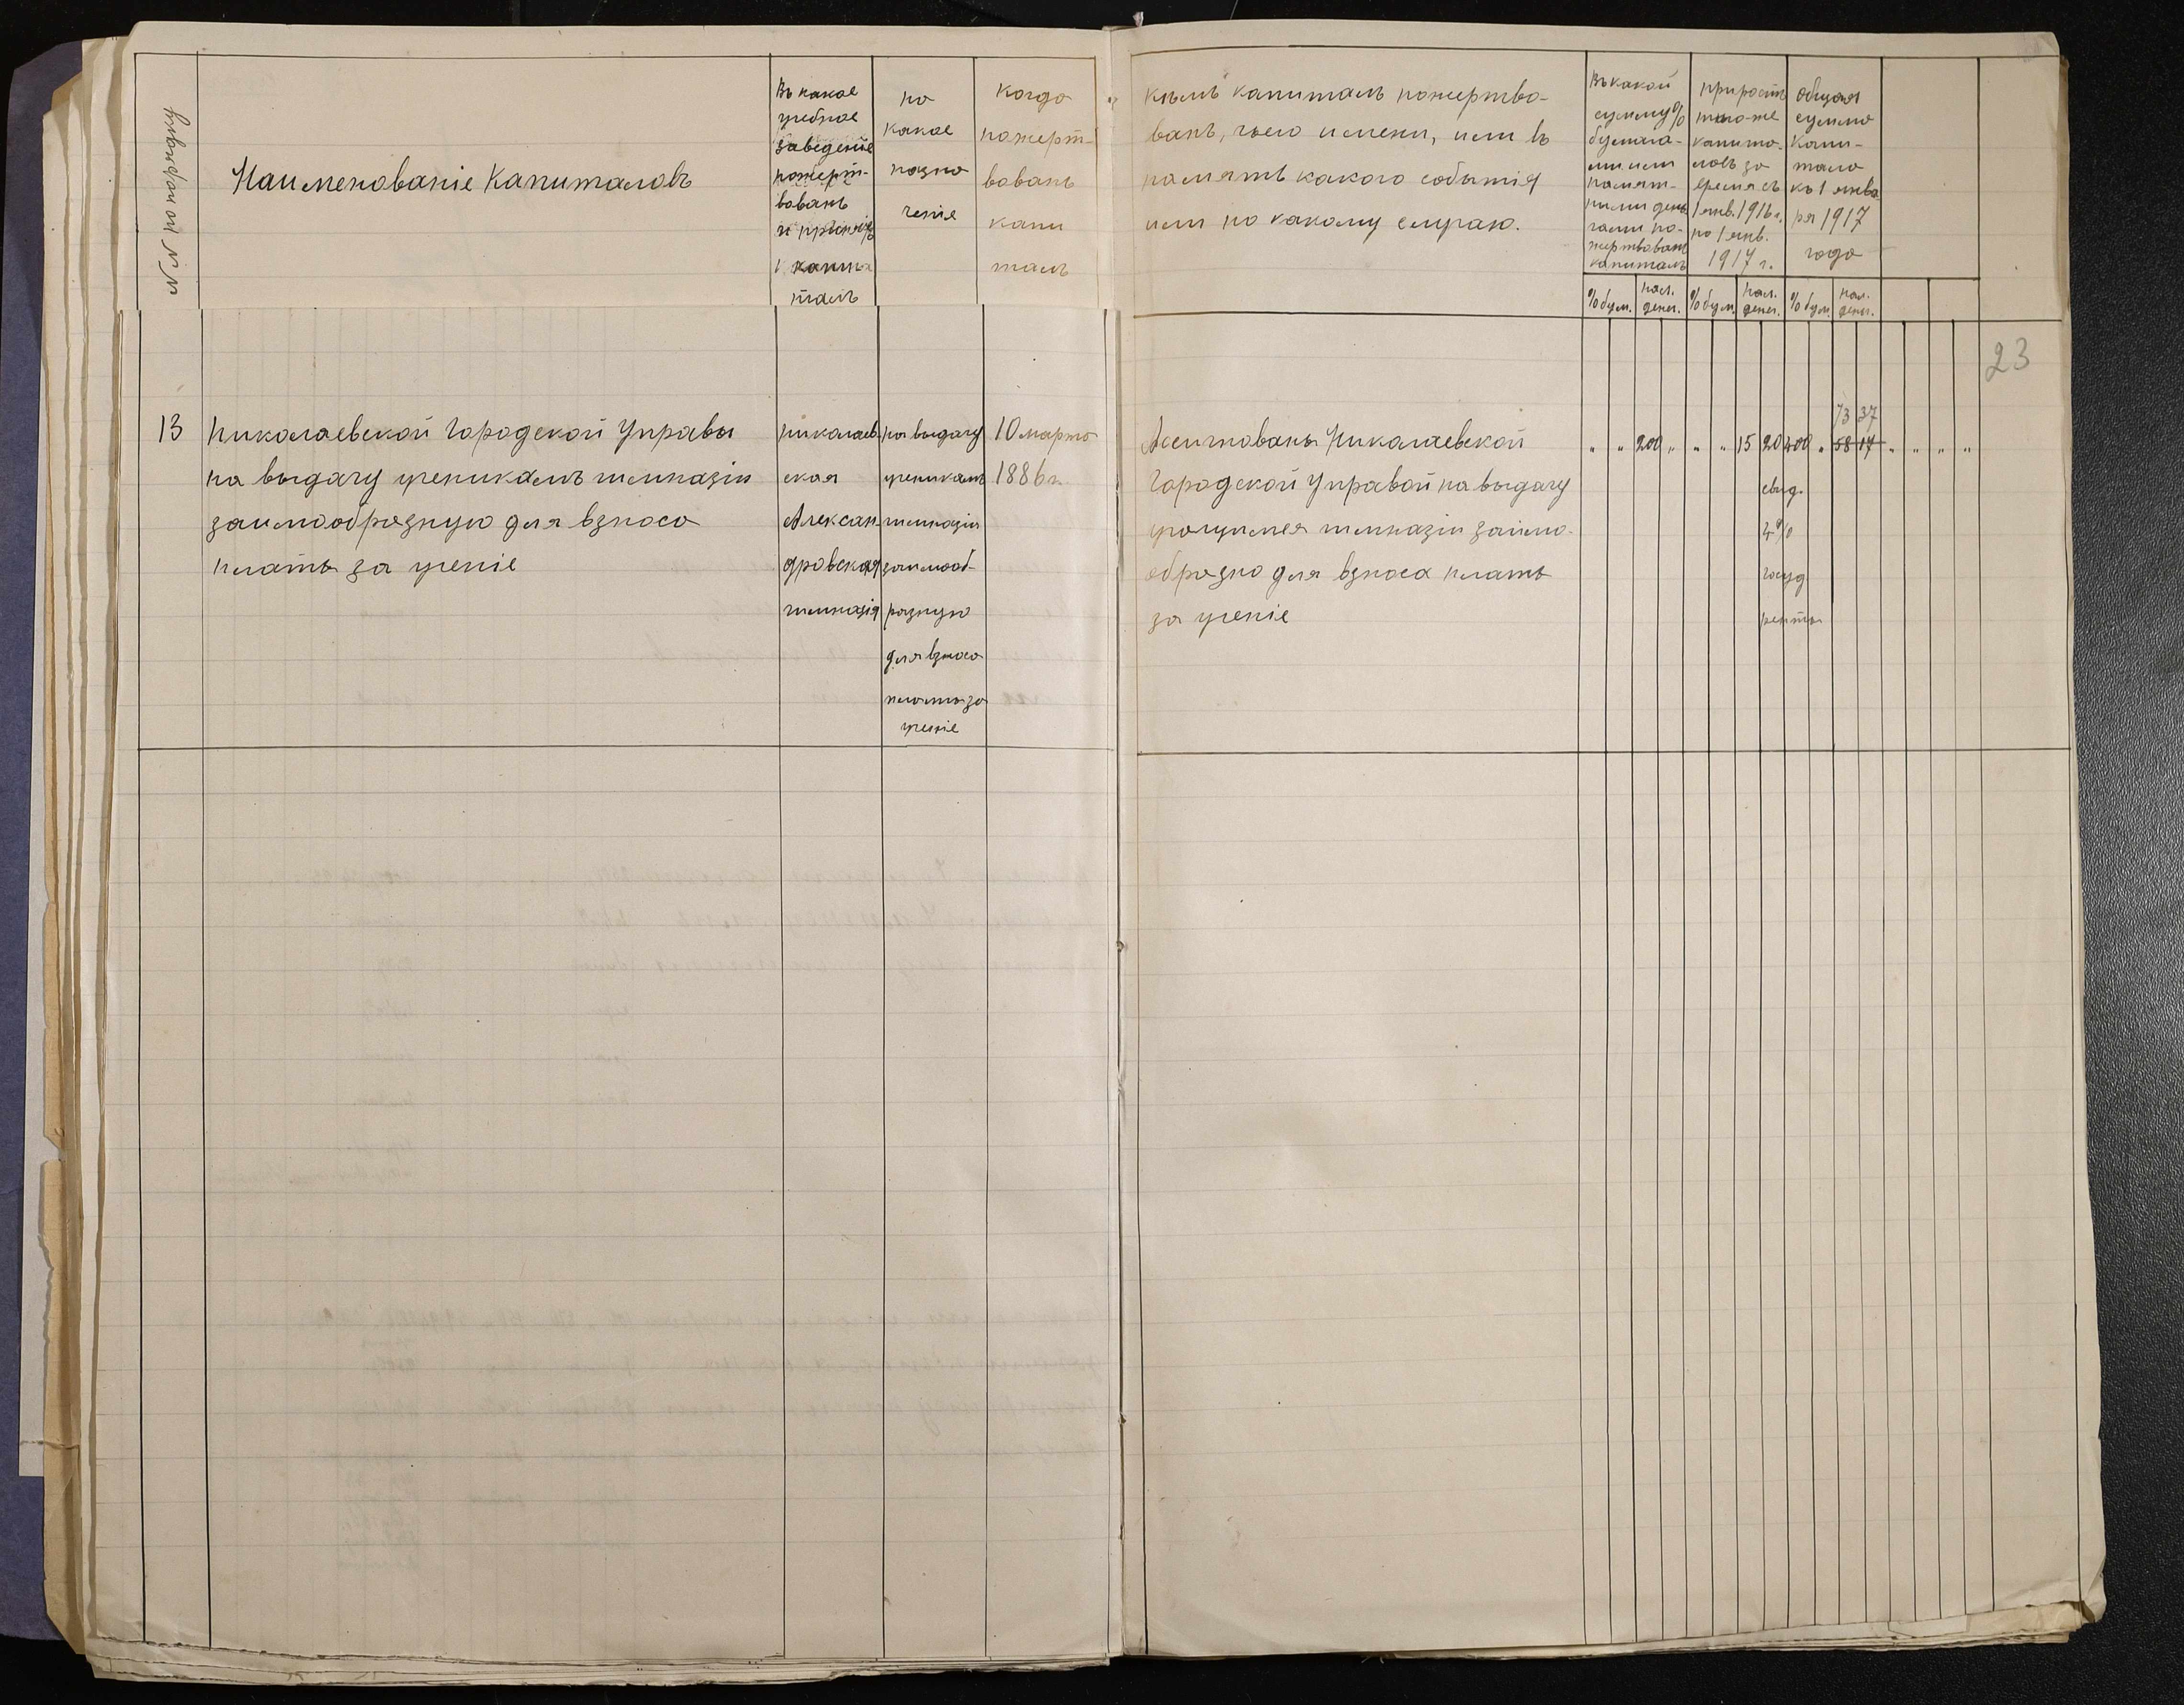 №№ по порядку
Наименованіе Капиталовъ
Въ какое
учебное
заведеніе
пожерт-
вованъ
капи-
талъ
на
какое
назна
ченіе
когда
пожерт-
вованъ
капи
талъ
Кѣмъ капиталъ пожертво-
ванъ, чьего имени, или въ
память какого событія
или по какому случаю.
Въ какой
сумму %
бумага-
ми или
налич-
ными день
гами по-
жертвованъ
капиталъ
приростъ
капита-
ловъ за
время съ
1 янв. 1916 г.
по 1 янв.
1917 г.
общая
сумма
Капи-
тала
къ 1 янва
ря 1917
года
% бум.
нал.
денег.
% бум.
нал.
денег.
% бум.
нал.
денег.
23
13
Николаевской Городской Управы
на выдачу ученикамъ гимназіи
заимообразную для взноса
платы за ученіе
Николаев-
ская
Алексан-
дровская
гимназія
на выдачу
ученикамъ
гимназіи
заимооб-
разную
для взноса
платы за
ученіе
10 марта
1886 г.
Ассигнованы Николаевской
Городской Управой на выдачу
гимназіи заимо-
образно для взноса платы
за ученіе
" " 200 " " " 15 20 400 " 58 17 " " " "
73 37
свид.
4%
госуд.
ренты